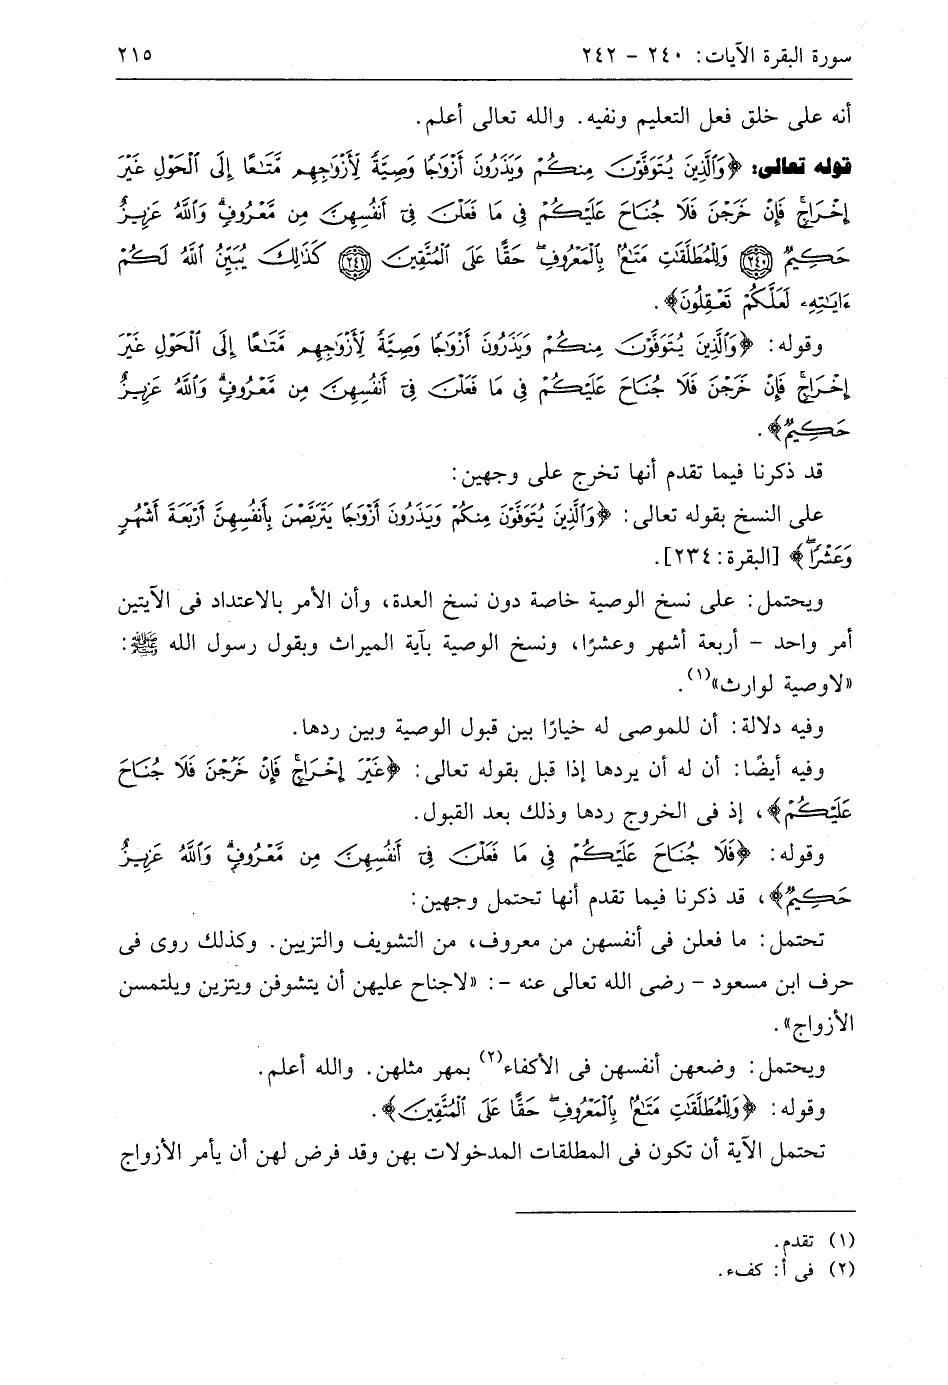 سورة البقرة الآيات: ٢٤٠ - ٢٤٢ ٢١٥
أنه على خلق فعل التعليم ونفيه. والله تعالى أعلم.
قوله تعالى: ﴿وَٱلَّذِينَ يُتَوَفَّوۡنَ مِنكُمۡ وَيَذَرُونَ أَزۡوَٰجٗا وَصِيَّةٗ لِّأَزۡوَٰجِهِم مَّتَٰعًا إِلَى ٱلۡحَوۡلِ غَيۡرَ
إِخۡرَاجٖۚ فَإِنۡ خَرَجۡنَ فَلَا جُنَاحَ عَلَيۡكُمۡ فِي مَا فَعَلۡنَ فِيٓ أَنفُسِهِنَّ مِن مَّعۡرُوفٖۗ وَٱللَّهُ عَزِيزٌ
حَكِيمٞ ٢٤٠ وَلِلۡمُطَلَّقَٰتِ مَتَٰعُۢ بِٱلۡمَعۡرُوفِۖ حَقًّا عَلَى ٱلۡمُتَّقِينَ ٢٤١ كَذَٰلِكَ يُبَيِّنُ ٱللَّهُ لَكُمۡ
ءَايَٰتِهِۦ لَعَلَّكُمۡ تَعۡقِلُونَ﴾.
وقوله: ﴿وَٱلَّذِينَ يُتَوَفَّوۡنَ مِنكُمۡ وَيَذَرُونَ أَزۡوَٰجٗا وَصِيَّةٗ لِّأَزۡوَٰجِهِم مَّتَٰعًا إِلَى ٱلۡحَوۡلِ غَيۡرَ
إِخۡرَاجٖۚ فَإِنۡ خَرَجۡنَ فَلَا جُنَاحَ عَلَيۡكُمۡ فِي مَا فَعَلۡنَ فِيٓ أَنفُسِهِنَّ مِن مَّعۡرُوفٖۗ وَٱللَّهُ عَزِيزٌ
حَكِيمٞ﴾.
قد ذكرنا فيما تقدم أنها تخرج على وجهين:
على النسخ بقوله تعالى: ﴿وَٱلَّذِينَ يُتَوَفَّوۡنَ مِنكُمۡ وَيَذَرُونَ أَزۡوَٰجٗا يَتَرَبَّصۡنَ بِأَنفُسِهِنَّ أَرۡبَعَةَ أَشۡهُرٖ
وَعَشۡرٗاۖ﴾ [البقرة: ٢٣٤].
ويحتمل: على نسخ الوصية خاصة دون نسخ العدة، وأن الأمر بالاعتداد فى الآيتين
أمر واحد - أربعة أشهر وعشرًا، ونسخ الوصية بآية الميراث وبقول رسول الله ﷺ:
«لاوصية لوارث»(١).
وفيه دلالة: أن للموصى له خيارًا بين قبول الوصية وبين ردها.
وفيه أيضًا: أن له أن يردها إذا قبل بقوله تعالى: ﴿غَيۡرَ إِخۡرَاجٖۚ فَإِنۡ خَرَجۡنَ فَلَا جُنَاحَ
عَلَيۡكُمۡ﴾، إذ فى الخروج ردها وذلك بعد القبول.
وقوله: ﴿فَلَا جُنَاحَ عَلَيۡكُمۡ فِي مَا فَعَلۡنَ فِيٓ أَنفُسِهِنَّ مِن مَّعۡرُوفٖۗ وَٱللَّهُ عَزِيزٌ
حَكِيمٞ﴾، قد ذكرنا فيما تقدم أنها تحتمل وجهين:
تحتمل: ما فعلن فى أنفسهن من معروف، من التشويف والتزيين. وكذلك روى فى
حرف ابن مسعود - رضى الله تعالى عنه -: «لاجناح عليهن أن يتشوفن ويتزين ويلتمسن
الأزواج».
ويحتمل: وضعهن أنفسهن فى الأكفاء(٢) بمهر مثلهن. والله أعلم.
وقوله: ﴿وَلِلۡمُطَلَّقَٰتِ مَتَٰعُۢ بِٱلۡمَعۡرُوفِۖ حَقًّا عَلَى ٱلۡمُتَّقِينَ﴾.
تحتمل الآية أن تكون فى المطلقات المدخولات بهن وقد فرض لهن أن يأمر الأزواج
(١) تقدم.
(٢) فى أ: كفء.